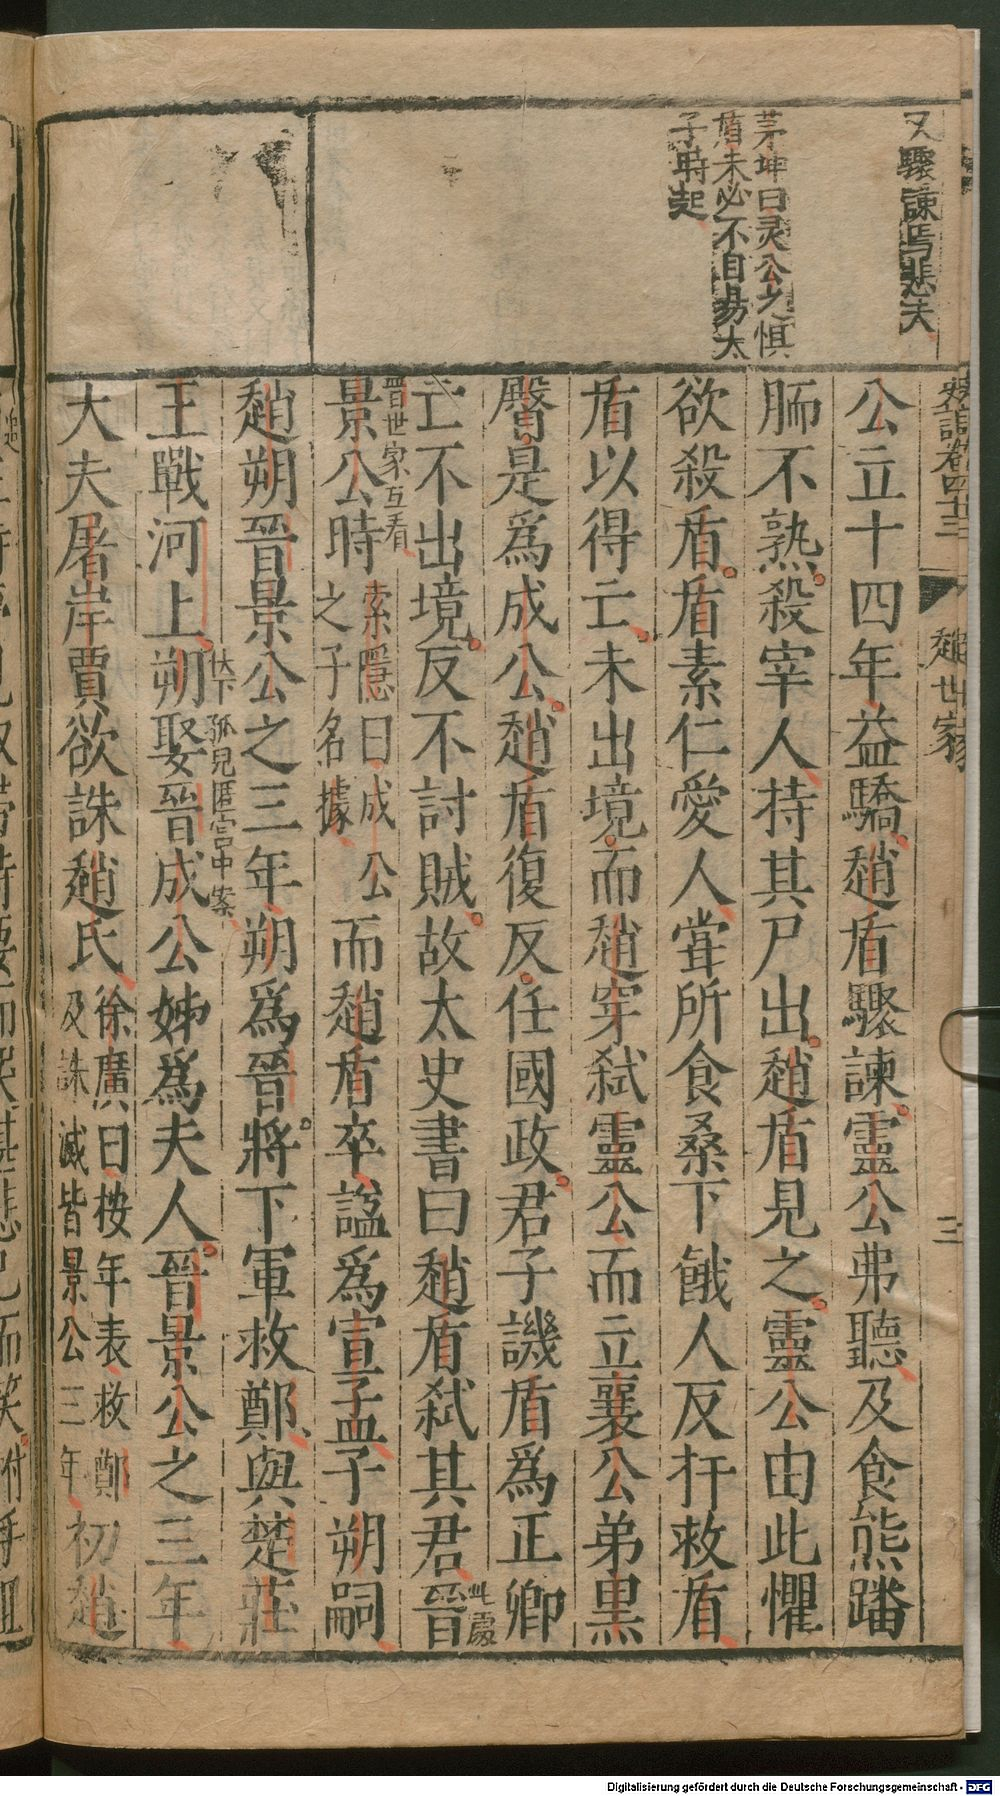 又驟諫焉悲夫
茅坤曰灵公之惧
盾未必不自昜太
子時起
史記卷四十三
趙世家
三
公立十四年益驕趙盾驟諫靈公弗聽及食熊蹯
胹不熟殺宰人持其尸出趙盾見之靈公由此懼
欲殺盾盾素仁愛人甞所食桑下餓人反扞救盾
盾以得亡未出境而趙穿弒靈公而立襄公弟黒
臀是爲成公趙盾復反任國政君子譏盾爲正卿
亡不出境反不討賊故太史書曰趙盾弒其君晉
此處
晉世家互看
景公時
索隱曰成公
之子名據
而趙盾卒諡爲宣孟子朔嗣
趙朔晉景公之三年朔爲晉將下軍救鄭與楚莊
王戰河上朔娶晉成公姊爲夫人晉景公之三年
伏下孤兒匿宮中案
大夫屠岸賈欲誅趙氏
徐廣曰按年表救鄭
及誅滅皆景公三年
初趙
Digitalisierung gefördert durch die Deutsche Forschungsgemeinschaft - DFG